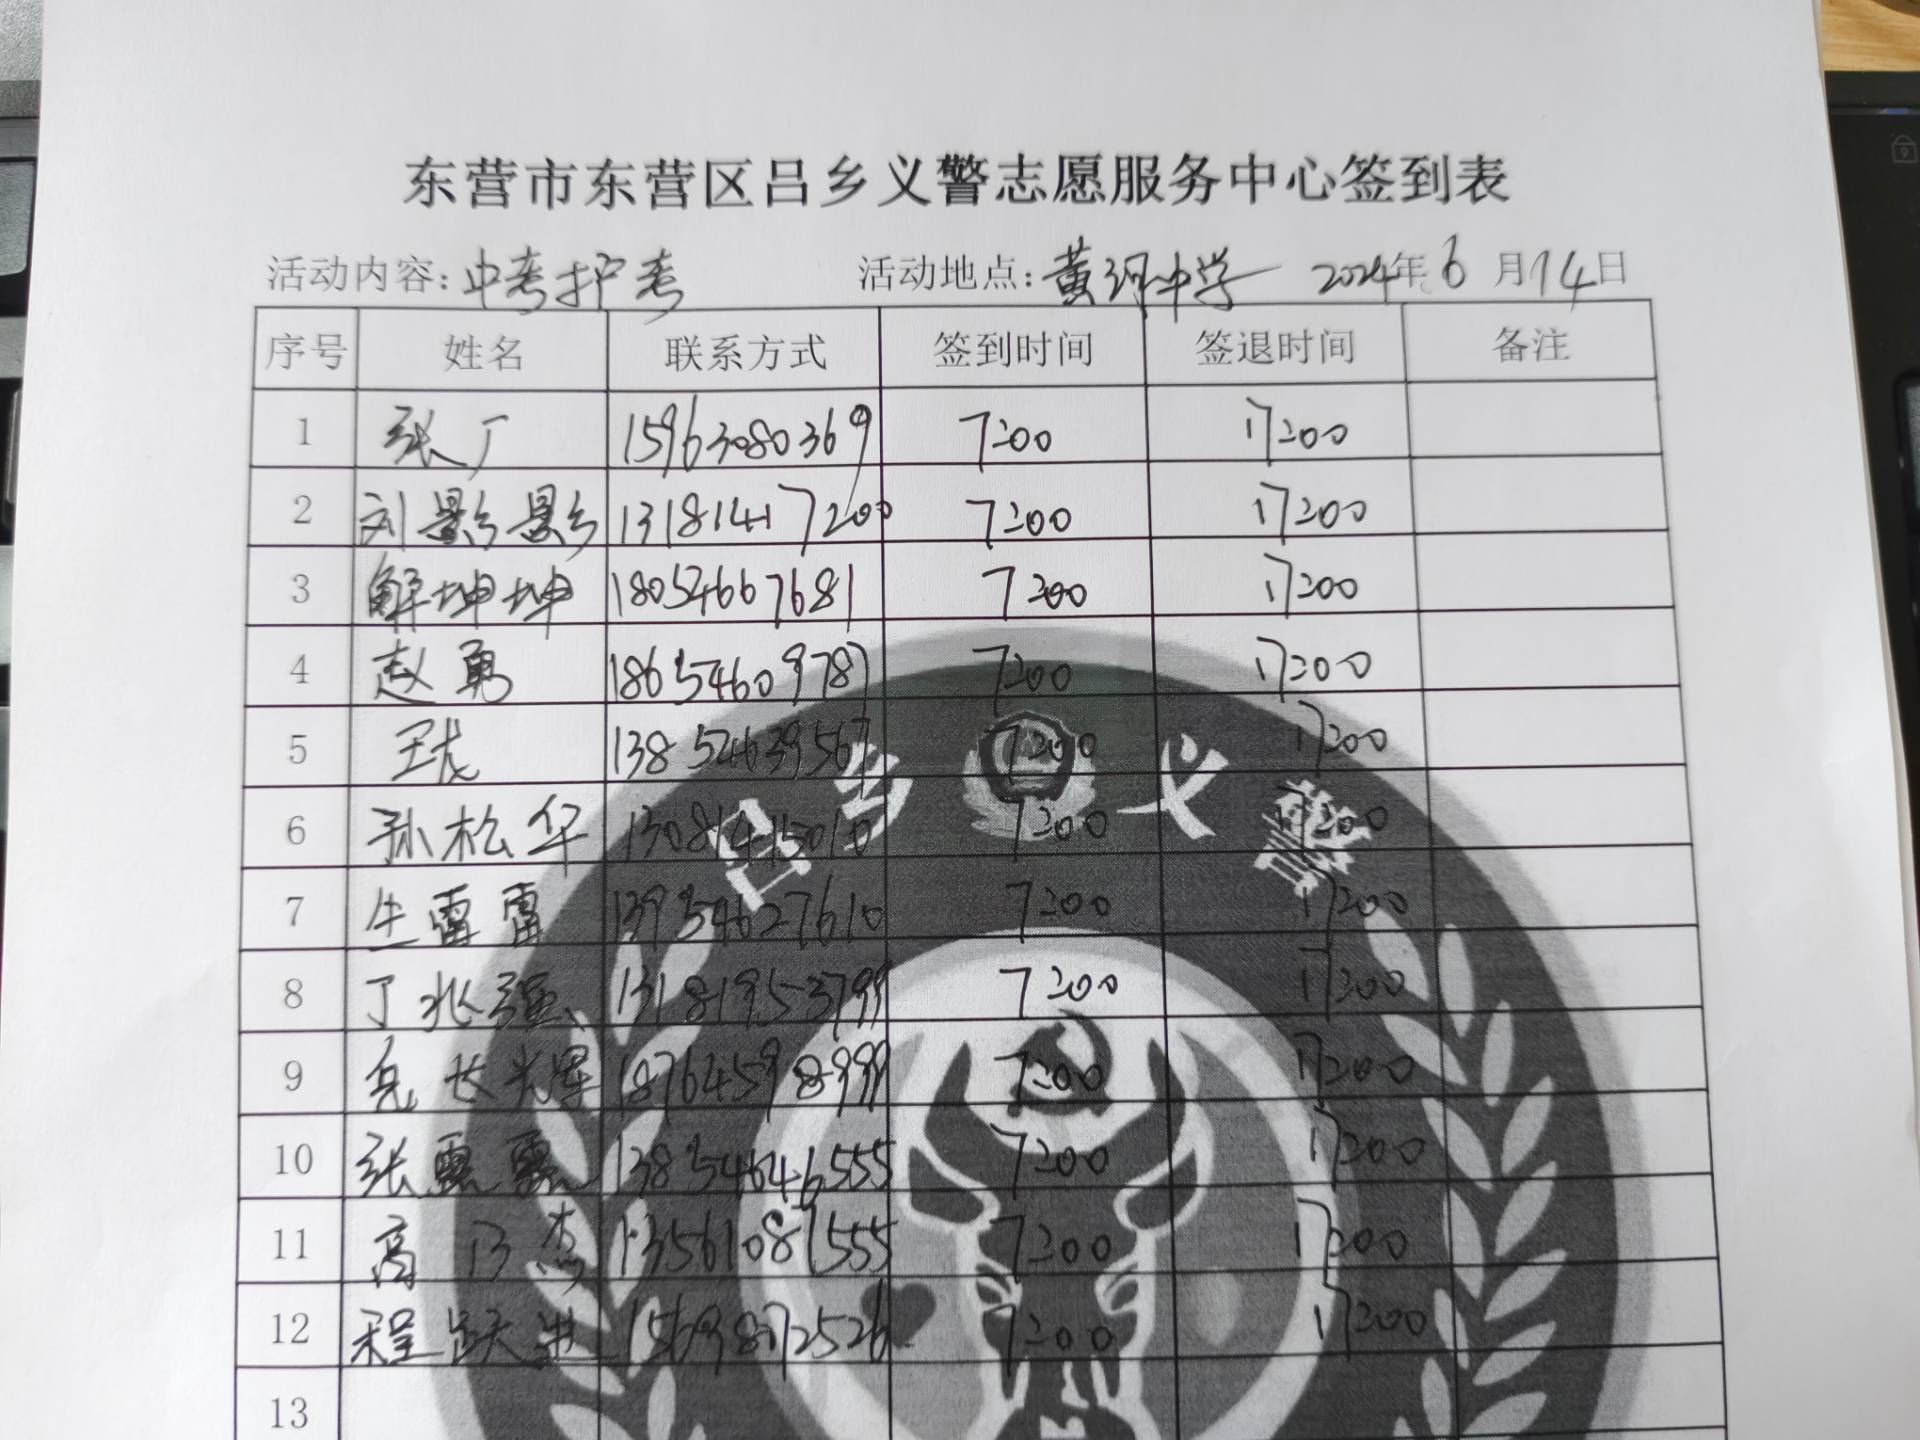 东营市东营区吕乡义警志愿服务中心签到表
活动内容：中考护考 活动地点：黄河中学 2024年6月14日
序号 姓名 联系方式 签到时间 签退时间 备注
1 张厂 15963080369 7:00 17:00
2 刘影影 13181417200 7:00 17:00
3 解坤坤 18054667681 7:00 17:00
4 赵勇 18654609787 7:00 17:00
5 王龙 13852463956 7:00 17:00
6 孙松华 13081415010 7:00 17:00
7 生雷雷 13954627610 7:00 17:00
8 丁兆强 13181953799 7:00 17:00
9 18764598999 7:00 17:00
10 张 13854646555 7:00 17:00
11 高 杰 13561087555 7:00 17:00
12 程跃进 15698072526 7:00 17:00
13
吕乡义警